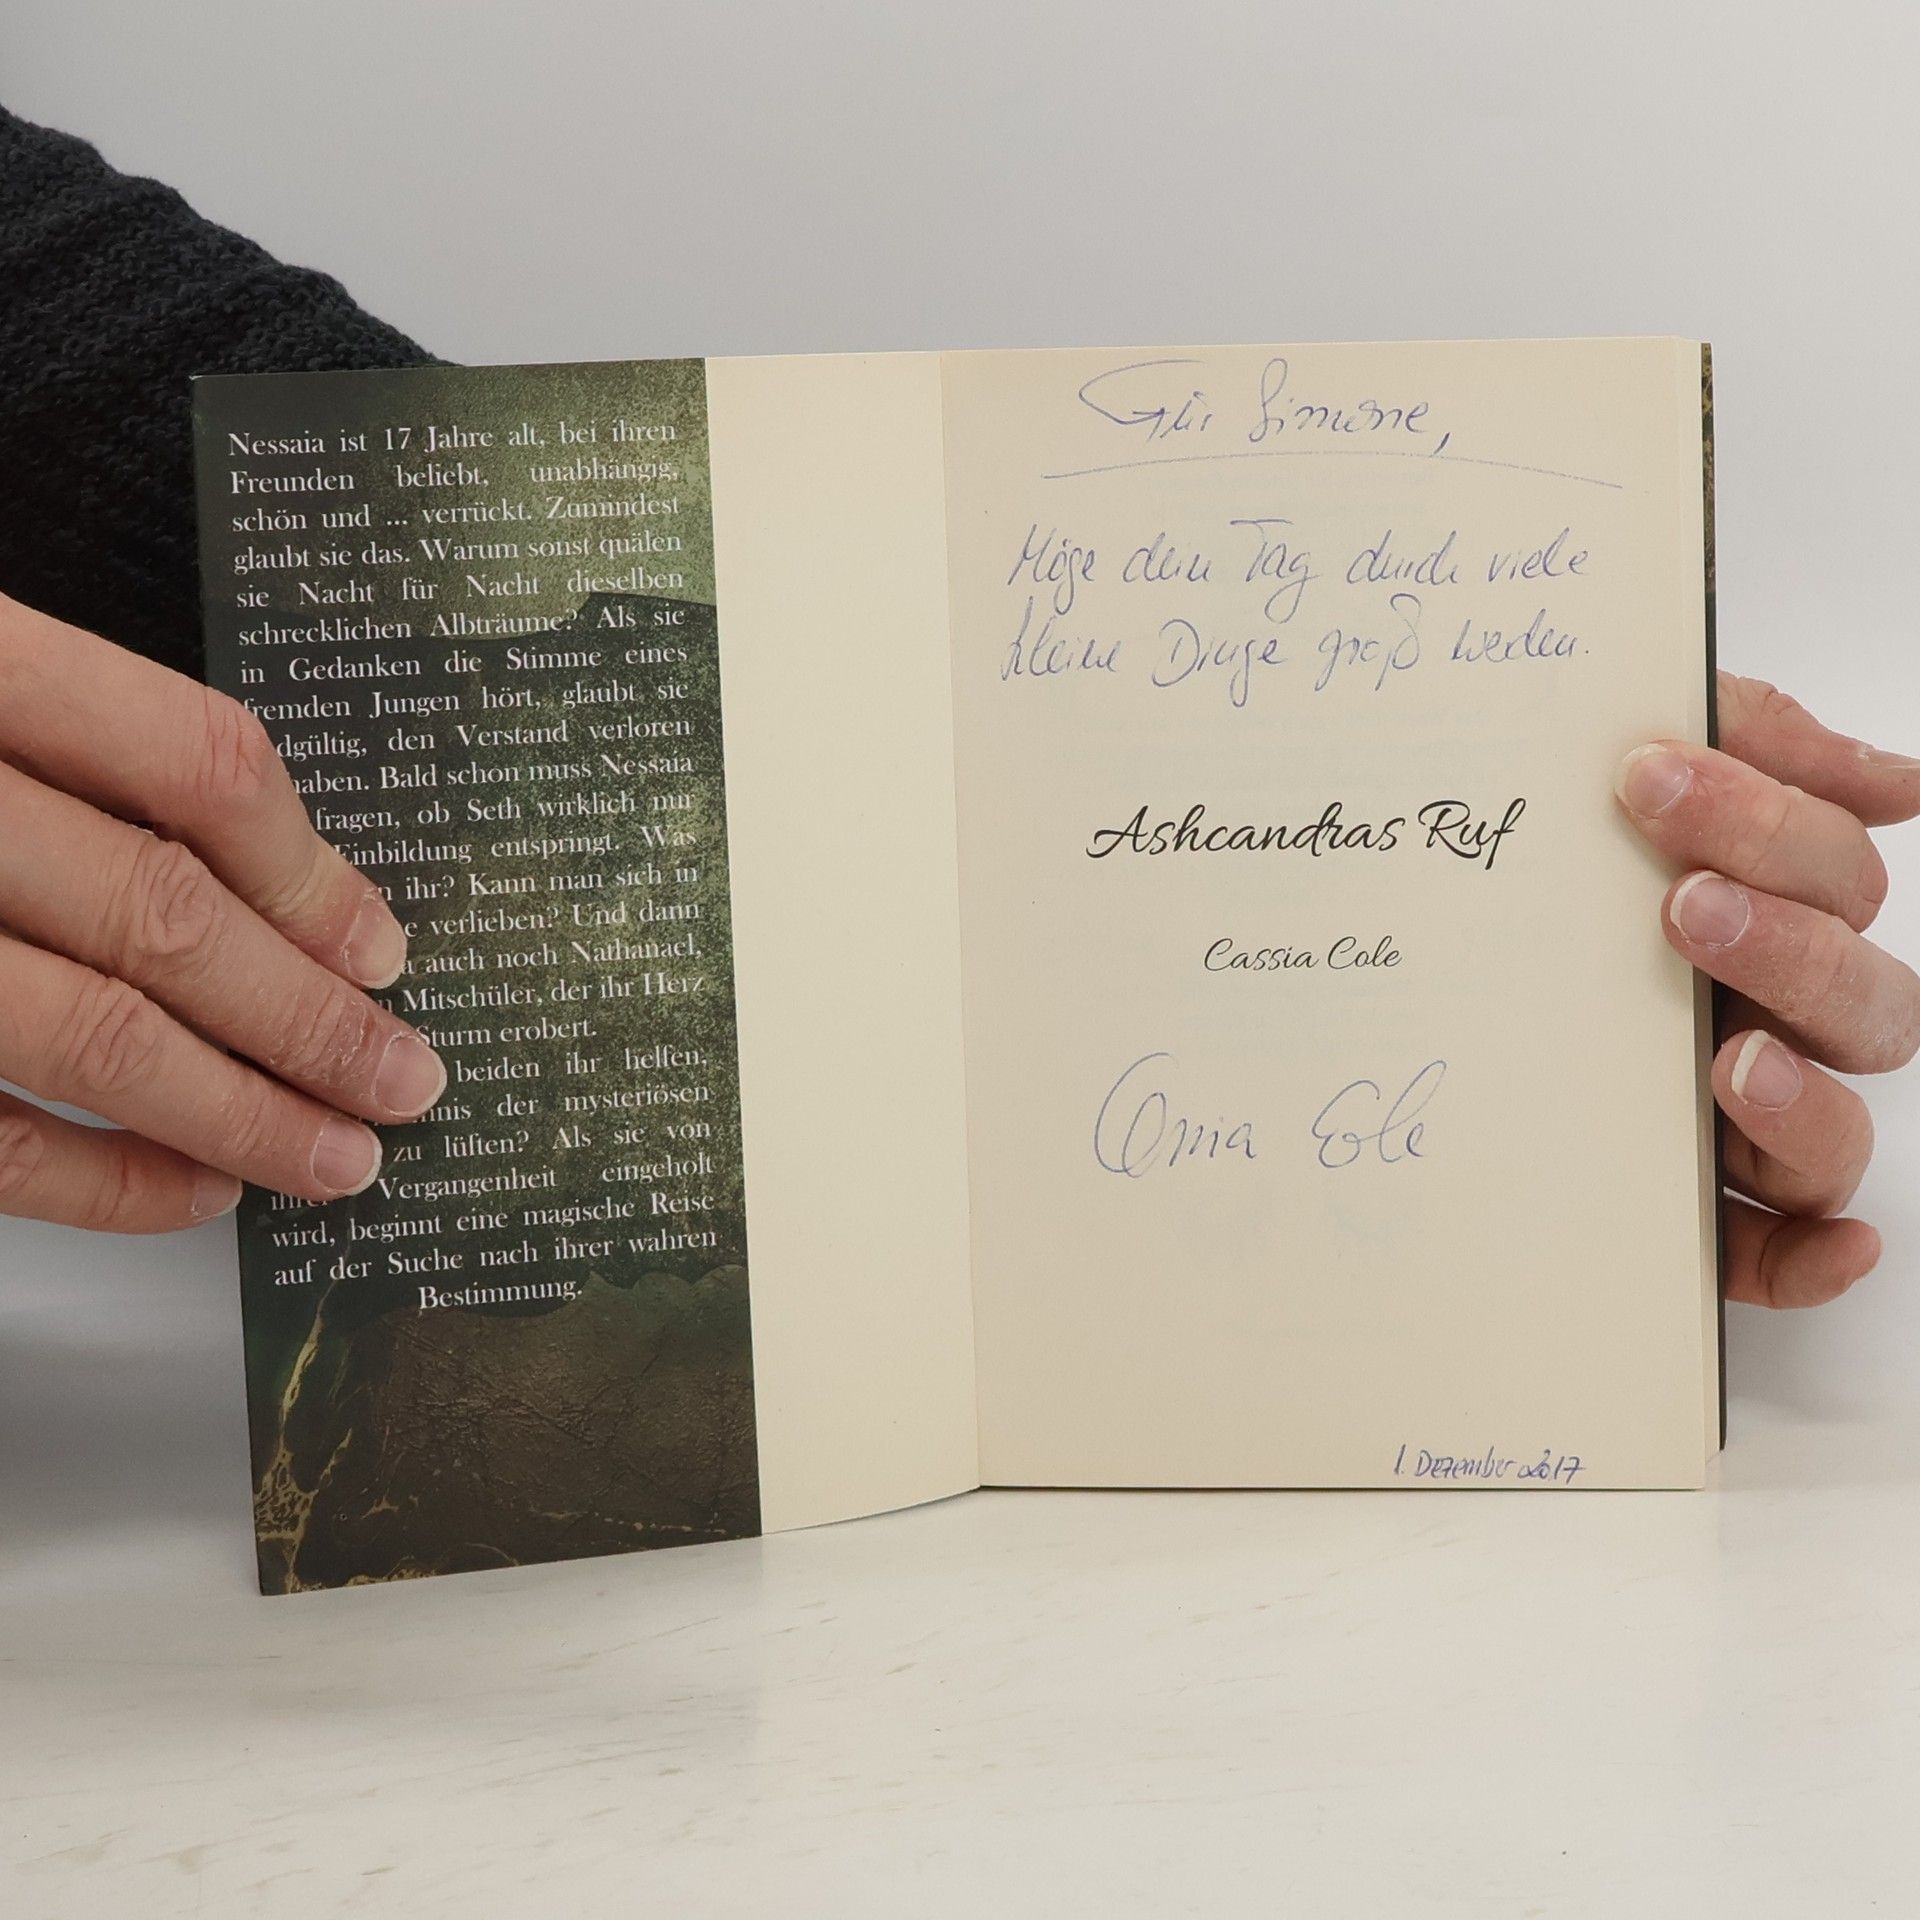 Nessaia ist 17 Jahre alt, bei ihren
Freunden beliebt, unabhängig,
schön und ... verrückt. Zumindest
glaubt sie das. Warum sonst quälen
sie Nacht für Nacht dieselben
schrecklichen Albträume? Als sie
in Gedanken die Stimme eines
fremden Jungen hört, glaubt sie
dgültig, den Verstand verloren
haben. Bald schon muss Nessaia
fragen, ob Seth wirklich nur
Einbildung entspringt. Was
n ihr? Kann man sich in
e verlieben? Und dann
a auch noch Nathanael,
n Mitschüler, der ihr Herz
Sturm erobert.
beiden ihr helfen,
nis der mysteriösen
zu lüften? Als sie von
ihrer Vergangenheit eingeholt
wird, beginnt eine magische Reise
auf der Suche nach ihrer wahren
Bestimmung.
Für Simone,
Möge dein Tag durch viele
kleine Dinge groß werden.
Ashcandras Ruf
Cassia Cole
Cassia Cole
1. Dezember 2017